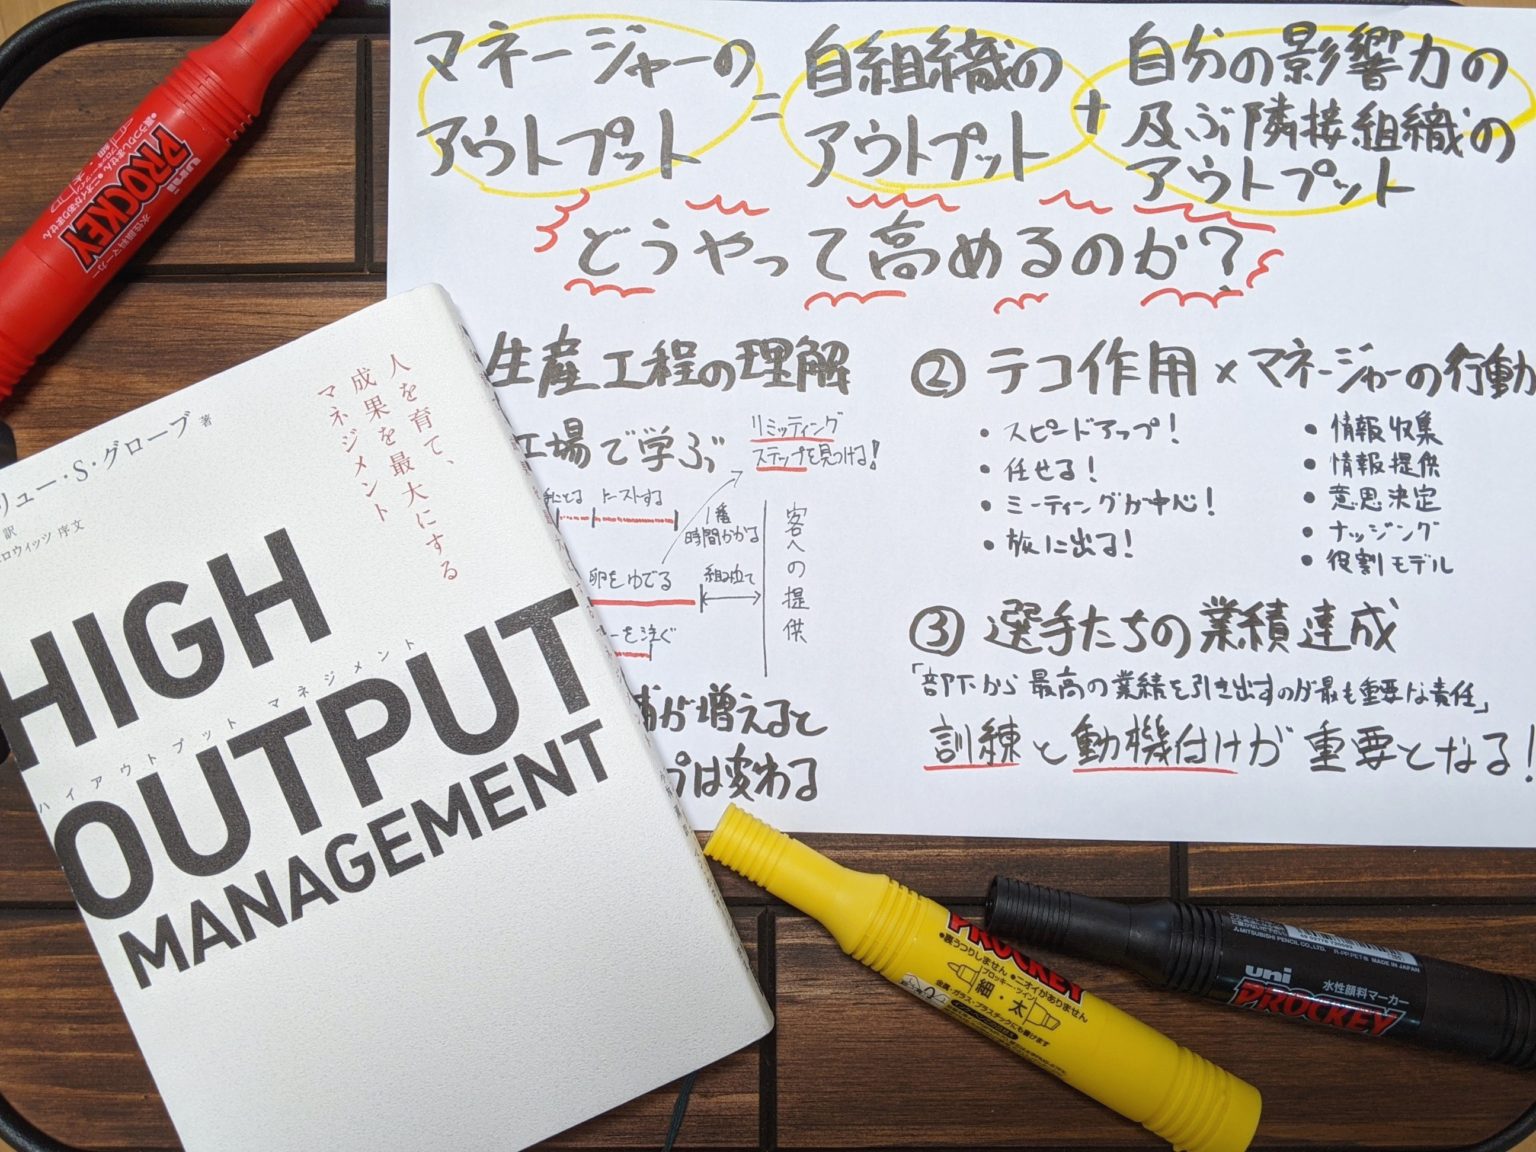 マネージャーの
アウトプット
=
自組織の
アウトプット
+
自分の影響力の
及ぶ隣接組織の
アウトプット
どうやって高めるのか?
生産工程の理解
工場で学ぶ
リミッティング
ステップを見つける!
トーストする
1番
時間かかる
卵をゆでる
組み立て
を注ぐ
客への提供
が増えると
プは変わる
② テコ作用×マネージャーの行動
・スピードアップ!
・任せる!
・ミーティングが中心!
・旅に出る!
・情報収集
・情報提供
・意思決定
・ナッジング
・役割モデル
③ 選手たちの業績達成
「部下から最高の業績を引き出すのが最も重要な責任」
訓練と動機付けが重要となる!
リュー・S・グローブ 著
訳
ロウィッツ 序文
人を育て、
成果を最大にする
マネジメント
HIGH
OUTPUT
MANAGEMENT
ハイアウトプット マネジメント
uni
PROCKEY
水性顔料マーカー
●裏うつりしません ●ニオイがありません
PROCKEY
●裏うつりしません ●ニオイがありません
プロッキー・ツイン
細・太
金属・ガラス・プラスチックにも書けます
MITSUBISHI PENCIL CO., LTD.
MADE IN JAPAN
uni
PROCKEY
水性顔料マーカー